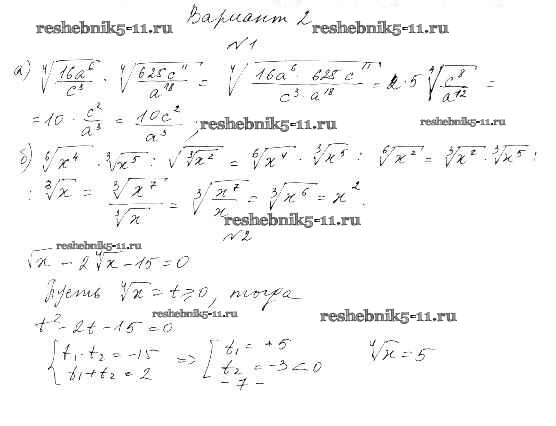 Вариант 2
reshebnik5-11.ru reshebnik5-11.ru
№1
а) ⁴√(16a⁶/c³) · ⁴√(625c¹¹/a¹⁸) = ⁴√(16a⁶ · 625c¹¹/c³ · a¹⁸) = 2 · 5 ⁴√(c⁸/a¹²) =
reshebnik5-11.ru
= 10 · c²/a³ = 10c²/a³;
reshebnik5-11.ru
б) ⁶√x⁴ · ³√x⁵ : √(³√x²) = ⁶√x⁴ · ³√x⁵ : ⁶√x² = ³√x² · ³√x⁵ :
: ³√x = ³√x⁷/³√x = ³√(x⁷/x) = ³√x⁶ = x².
reshebnik5-11.ru
№2
reshebnik5-11.ru
√x - 2⁴√x - 15 = 0
Пусть ⁴√x = t ≥ 0, тогда
reshebnik5-11.ru reshebnik5-11.ru
t² - 2t - 15 = 0
{t₁ · t₂ = -15 => [t₁ = +5 ⁴√x = 5
t₁ + t₂ = 2 t₂ = -3 < 0
- 7 -